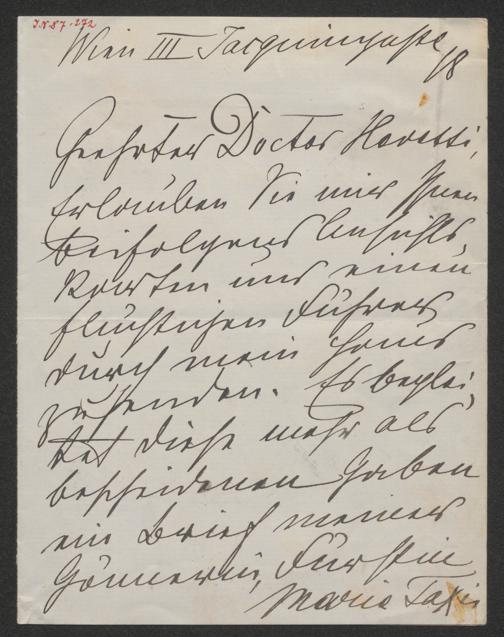 I.N 87.272
Wien III Jacquingasse
18
Geehrter Doctor Horatti,
Erlauben Sie mir Ihnen
beifolgend Ansichts
Karten und einen
flüchtigen Führer
durch mein Haus
zusenden. Es beglei,
tet diese mehr als
bescheidenen Gaben
ein Brief meiner
Gönnerin, Fürstin
Marie Taxis